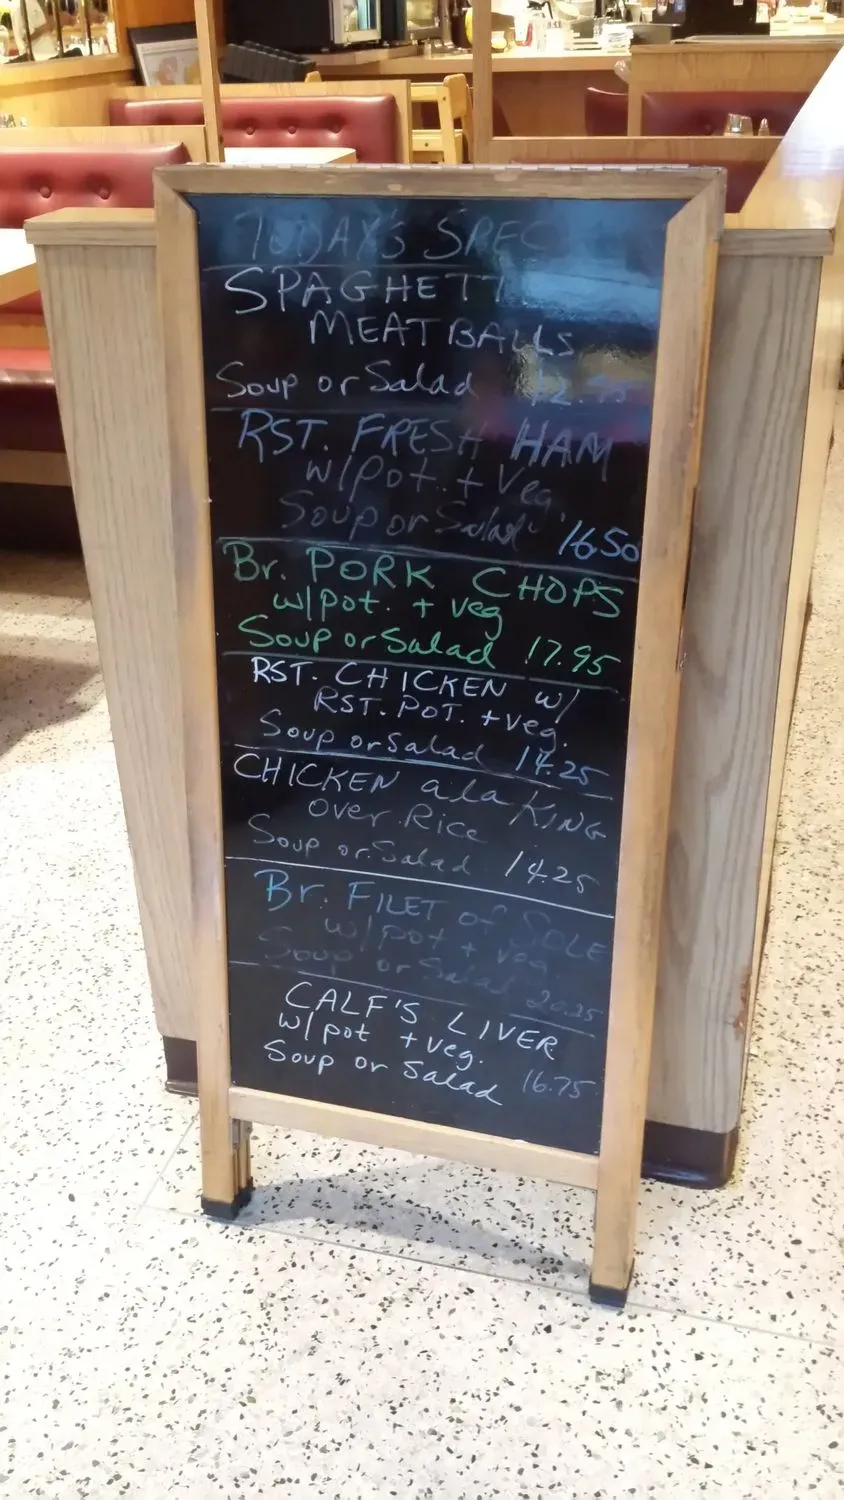 TODAY'S SPEC
SPAGHETT
MEATBALLS
Soup or Salad 12.95
RST. FRESH HAM
w/pot. + Veg.
Soup or Salad 16.50
Br. PORK CHOPS
w/pot. + veg
Soup or Salad 17.95
RST. CHICKEN w/
RST. POT. + veg.
Soup or Salad 14.25
CHICKEN a la KING
over Rice
Soup or Salad 14.25
Br. FILET of SOLE
w/pot + veg
Soup or Salad 20.25
CALF'S LIVER
w/pot + veg.
Soup or Salad 16.75